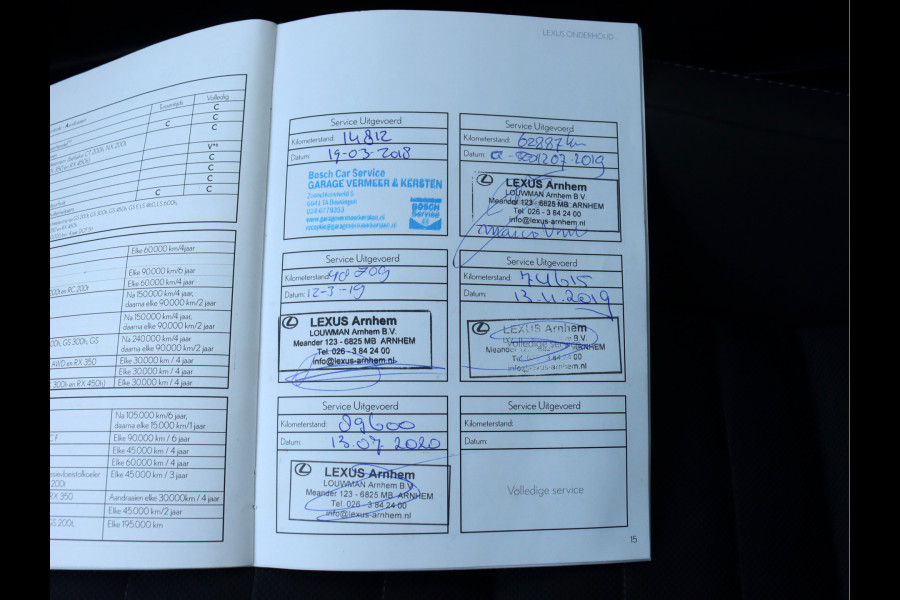 LEXUS ONDERHOUD
Volledig
C
C
C C
C
C
C
C C
Elke 60.000 km/4jaar
Elke 90.000 km/6 jaar
Elke 60.000 km/4 jaar
Na 150.000 km/4 jaar,
daarna elke 90.000 km/2 jaar
Na 150.000 km/4 jaar,
daarna elke 90.000 km/2 jaar
Na 240.000 km/4 jaar
daarna elke 90.000 km/2 jaar
AWD en RX 350 Elke 30.000 km / 4 jaar
Elke 30.000 km / 4 jaar
300h en RX 450h) Elke 30.000 km / 4 jaar
Na 105.000 km/6 jaar,
daarna elke 15.000 km/1 jaar
Elke 90.000 km / 6 jaar
Elke 45.000 km / 4 jaar
Elke 60.000 km / 4 jaar
Elke 45.000 km / 3 jaar
RX 350 Aandraaien elke 30.000km / 4 jaar
Elke 45.000 km/2 jaar
GS 200t Elke 195.000 km
Service Uitgevoerd
Kilometerstand: 14812
Datum: 19-03-2018
Bosch Car Service
GARAGE VERMEER & KERSTEN
BOSCH
Service
Service Uitgevoerd
Kilometerstand: 62887km
Datum: 1207.2019
LEXUS Arnhem
LOUWMAN Arnhem B.V.
Meander 123 - 6825 MB ARNHEM
Tel. 026 - 3 84 24 00
info@lexus-arnhem.nl
Service Uitgevoerd
Kilometerstand: 48709
Datum: 12-3-19
LEXUS Arnhem
LOUWMAN Arnhem B.V.
Meander 123 - 6825 MB ARNHEM
Tel. 026 - 3 84 24 00
info@lexus-arnhem.nl
Service Uitgevoerd
Kilometerstand: 74615
Datum: 13.11.2019
LEXUS Arnhem
Volledige service
info@lexus-arnhem.nl
Service Uitgevoerd
Kilometerstand: 89600
Datum: 13.07 2020
LEXUS Arnhem
LOUWMAN Arnhem B.V.
Meander 123 - 6825 MB ARNHEM
Tel. 026 - 3 84 24 00
info@lexus-arnhem.nl
Service Uitgevoerd
Kilometerstand:
Datum:
Volledige service
15